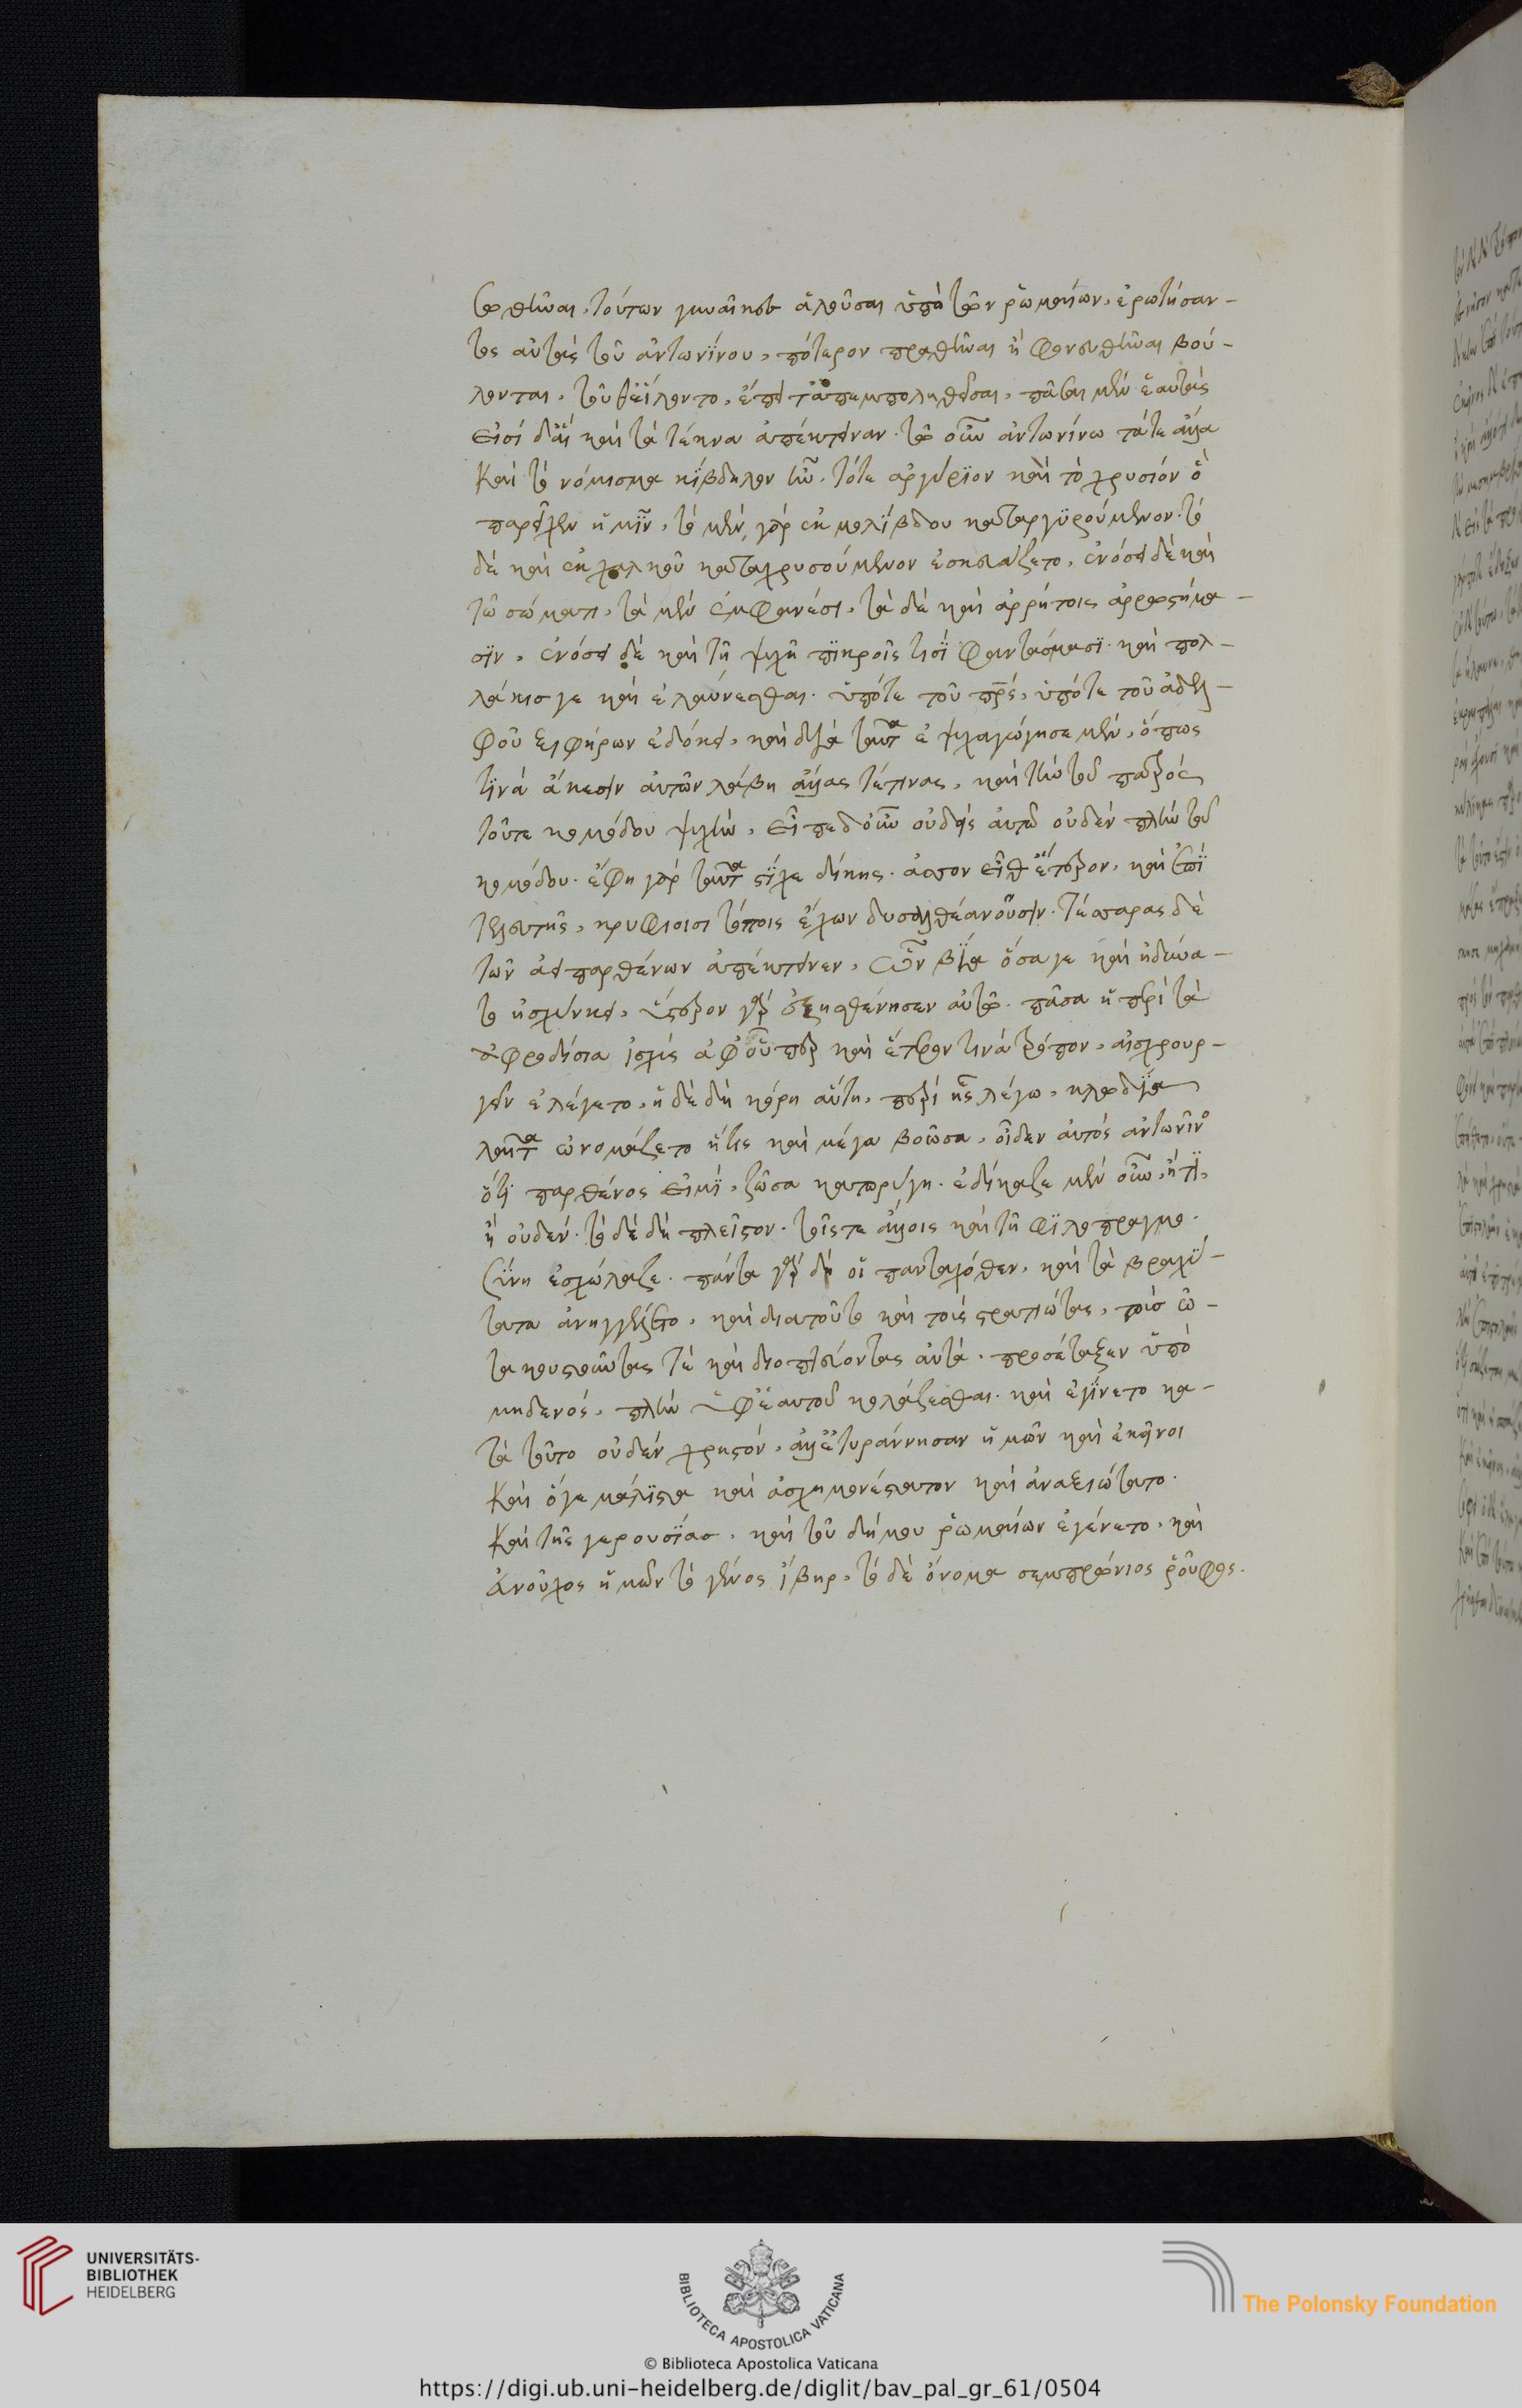 σωθῆναι. τούτων γυναῖκες ἁλοῦσαι ὑπὸ τῶν ῥωμαίων, ἐρωτήσαν-
τες αὐτὰς τοῦ ἀντωνίνου, πότερον πραθῆναι ἢ φονευθῆναι βού-
λονται, τοῦθ εἵλοντο, ἔπει τ ἀπεμποληθεῖσαι, πᾶσαι μὲν ἑαυτὰς
εἰσί δ αἳ καὶ τὰ τέκνα ἀπέκτειναν. τῶ οὖν ἀντωνίνω τά τε ἄλλα
καὶ τὸ νόμισμα κίβδηλον ἦν, τό τε ἀργύριον καὶ τὸ χρυσίον ὃ
παρεῖχεν ἡμῖν, τὸ μὲν γὰρ ἐκ μολίβδου καταργυρούμενον. τὸ
δὲ καὶ ἐκ χαλκοῦ καταχρυσούμενον ἐσκευάζετο, ἐνόσει δὲ καὶ
τῶ σώματι, τὰ μὲν ἐμφανέσι, τὰ δὲ καὶ ἀρρήτοις ἀρρωστήμα-
σιν, ἐνόσει δὲ καὶ τῆ ψυχῆ πικροῖς τισὶ φαντάσμασι. καὶ πολ-
λάκισ γε καὶ ἐλαύνεσθαι. ὑπό τε τοῦ πρς, ὑπό τε τοῦ ἀδελ-
φοῦ ξιφήρων ἐδόκει, καὶ διὰ ταῦτα ἐψυχαγώγησε μὲν, ὅπως
τινὰ ἄκεσιν αὐτῶν λάβη ἄλλας τέ τινας, καὶ τὴν τοῦ πατρός
τοῦ τε κομόδου ψυχὴν, εἶπε δ οὖν οὐδεὶς αὐτῶ οὐδὲν πλὴν τοῦ
κομόδου. ἔφη γὰρ ταῦτα στίχε δίκης. ἆσσον εἶθ ἕτερον, καὶ ἐπὶ
τελευτῆς, κρυφίοισι τόποις ἔχων δυσαλθέα νοῦσιν. τέσσαρας δὲ
τῶν ἀειπαρθένων ἀπέκτεινεν, ὧν βία ὅσα γε καὶ ἠδύνα-
το ἠσχύνκει, ὕστερον γὰρ ἐξησθένησεν αὐτῶ. πᾶσα ἡ περὶ τὰ
ἀφροδίσια ἰσχύς ἀφ οὗπερ καὶ ἕτερον τινὰ τρόπον, αἰσχρουρ-
γεῖν ἐλέγετο, ἡ δὲ δὴ κόρη αὕτη, περὶ ἧς λέγω, κλωδία
λαῖτα ὠνομάζετο ἥτις καὶ μέγα βοῶσα, οἶδεν αὐτὸς ἀντωνῖνο
ὅτι παρθένος εἰμὶ, ζῶσα κατωρύγη. ἐδίκαζε μὲν οὖν, ἤ τι,
ἢ οὐδέν. τὸ δὲ δὴ πλεῖστον. τοῖς τε ἄλλοις καὶ τῆ φιλοπραγμο-
σύνη ἐσχόλαζε. πάντα γὰρ δή οἱ πανταχόθεν, καὶ τὰ βραχύ-
τατα ἀνηγγέλετο, καὶ διατοῦτο καὶ τοὺς στρατιώτας, τοὺσ ὠ-
τακουστοῦντας τὲ καὶ διοπτεύοντας αὐτὰ. προσέταξεν ὑπὸ
μηδενὸς, πλὴν ὑφ ἑαυτοῦ κολάζεσθαι. καὶ ἐγίνετο κα-
τὰ τοῦτο οὐδὲν χρηστόν, ἀλλ ἐτυράννησαν ἡμῶν καὶ ἐκεῖνοι
καὶ ὅ γε μάλιστα καὶ ἀσχημονέστατον καὶ ἀναξιώτατο.
καὶ τῆς γερουσίασ, καὶ τοῦ δήμου ῥωμαίων ἐγένετο, καὶ
ἀνοῦχος ἡμῶν τὸ γένος ἴβηρ, τὸ δὲ ὄνομα σεμπρώνιος ῥοῦφος.
UNIVERSITÄTS-
BIBLIOTHEK
HEIDELBERG
BIBLIOTECA APOSTOLICA VATICANA
The Polonsky Foundation
© Biblioteca Apostolica Vaticana
https://digi.ub.uni-heidelberg.de/diglit/bav_pal_gr_61/0504